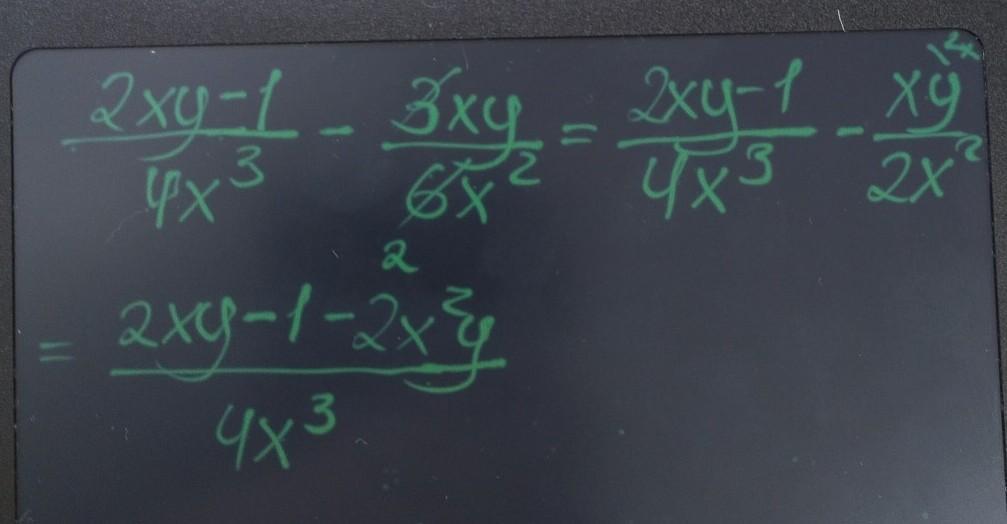 (2xy-1)/(4x³) - (3xy)/(6x²) = (2xy-1)/(4x³) - (xy\²ˣ)/(2x²)
2
= (2xy-1-2x²y)/(4x³)